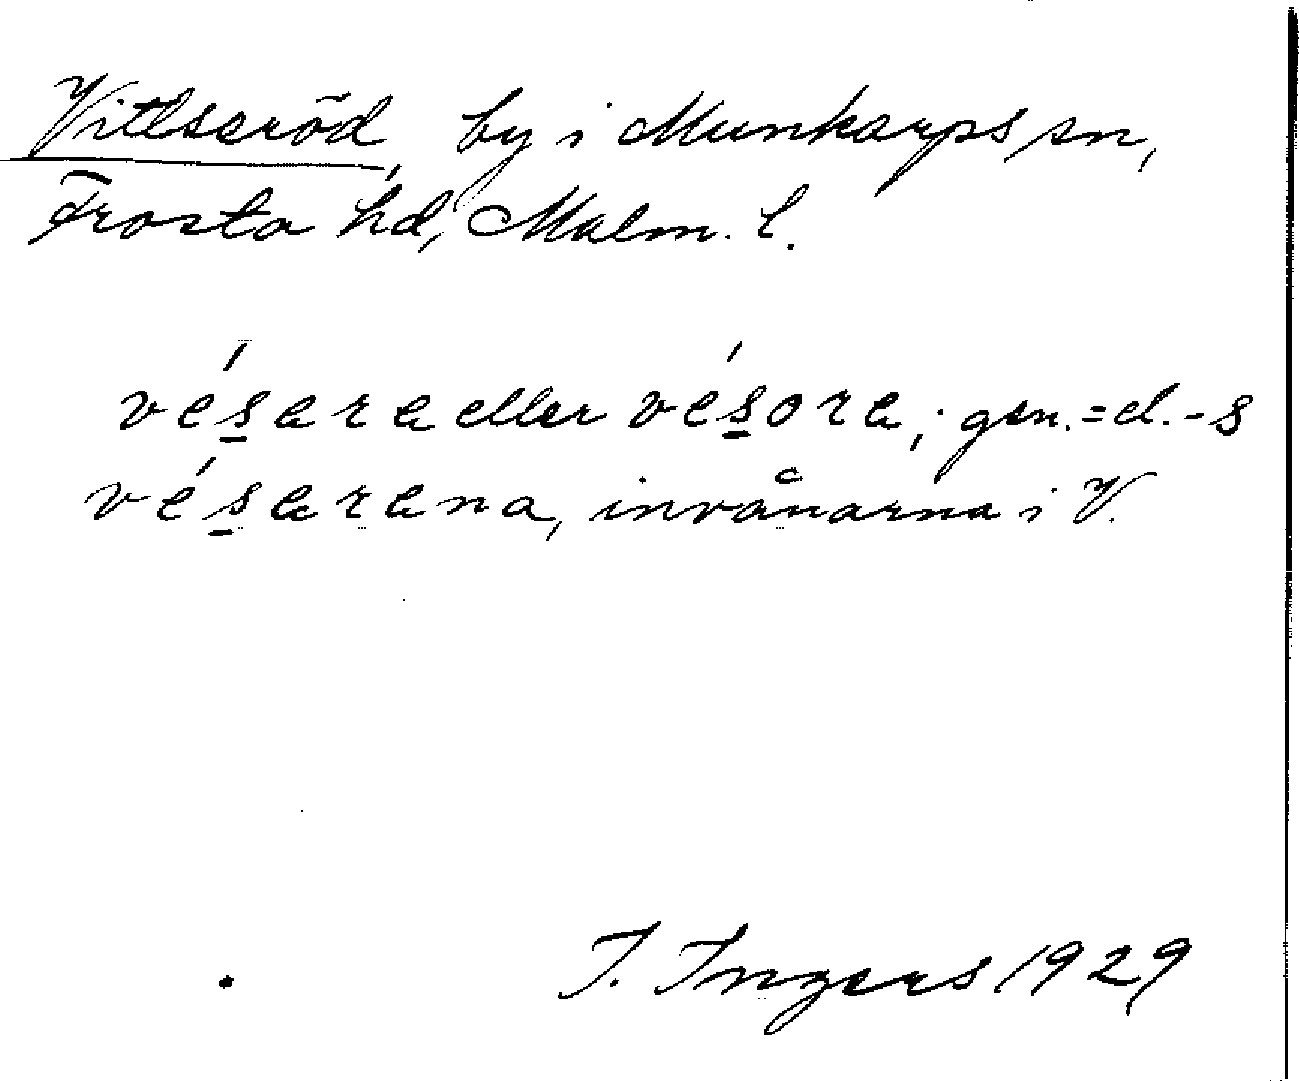 Vitlseröd, by i Munkarps sn,
Frosta hd, Malm. l.
vésara eller vésora; gen. = d. - s
vésarana, invånarna i V.
I. Ingers 1929